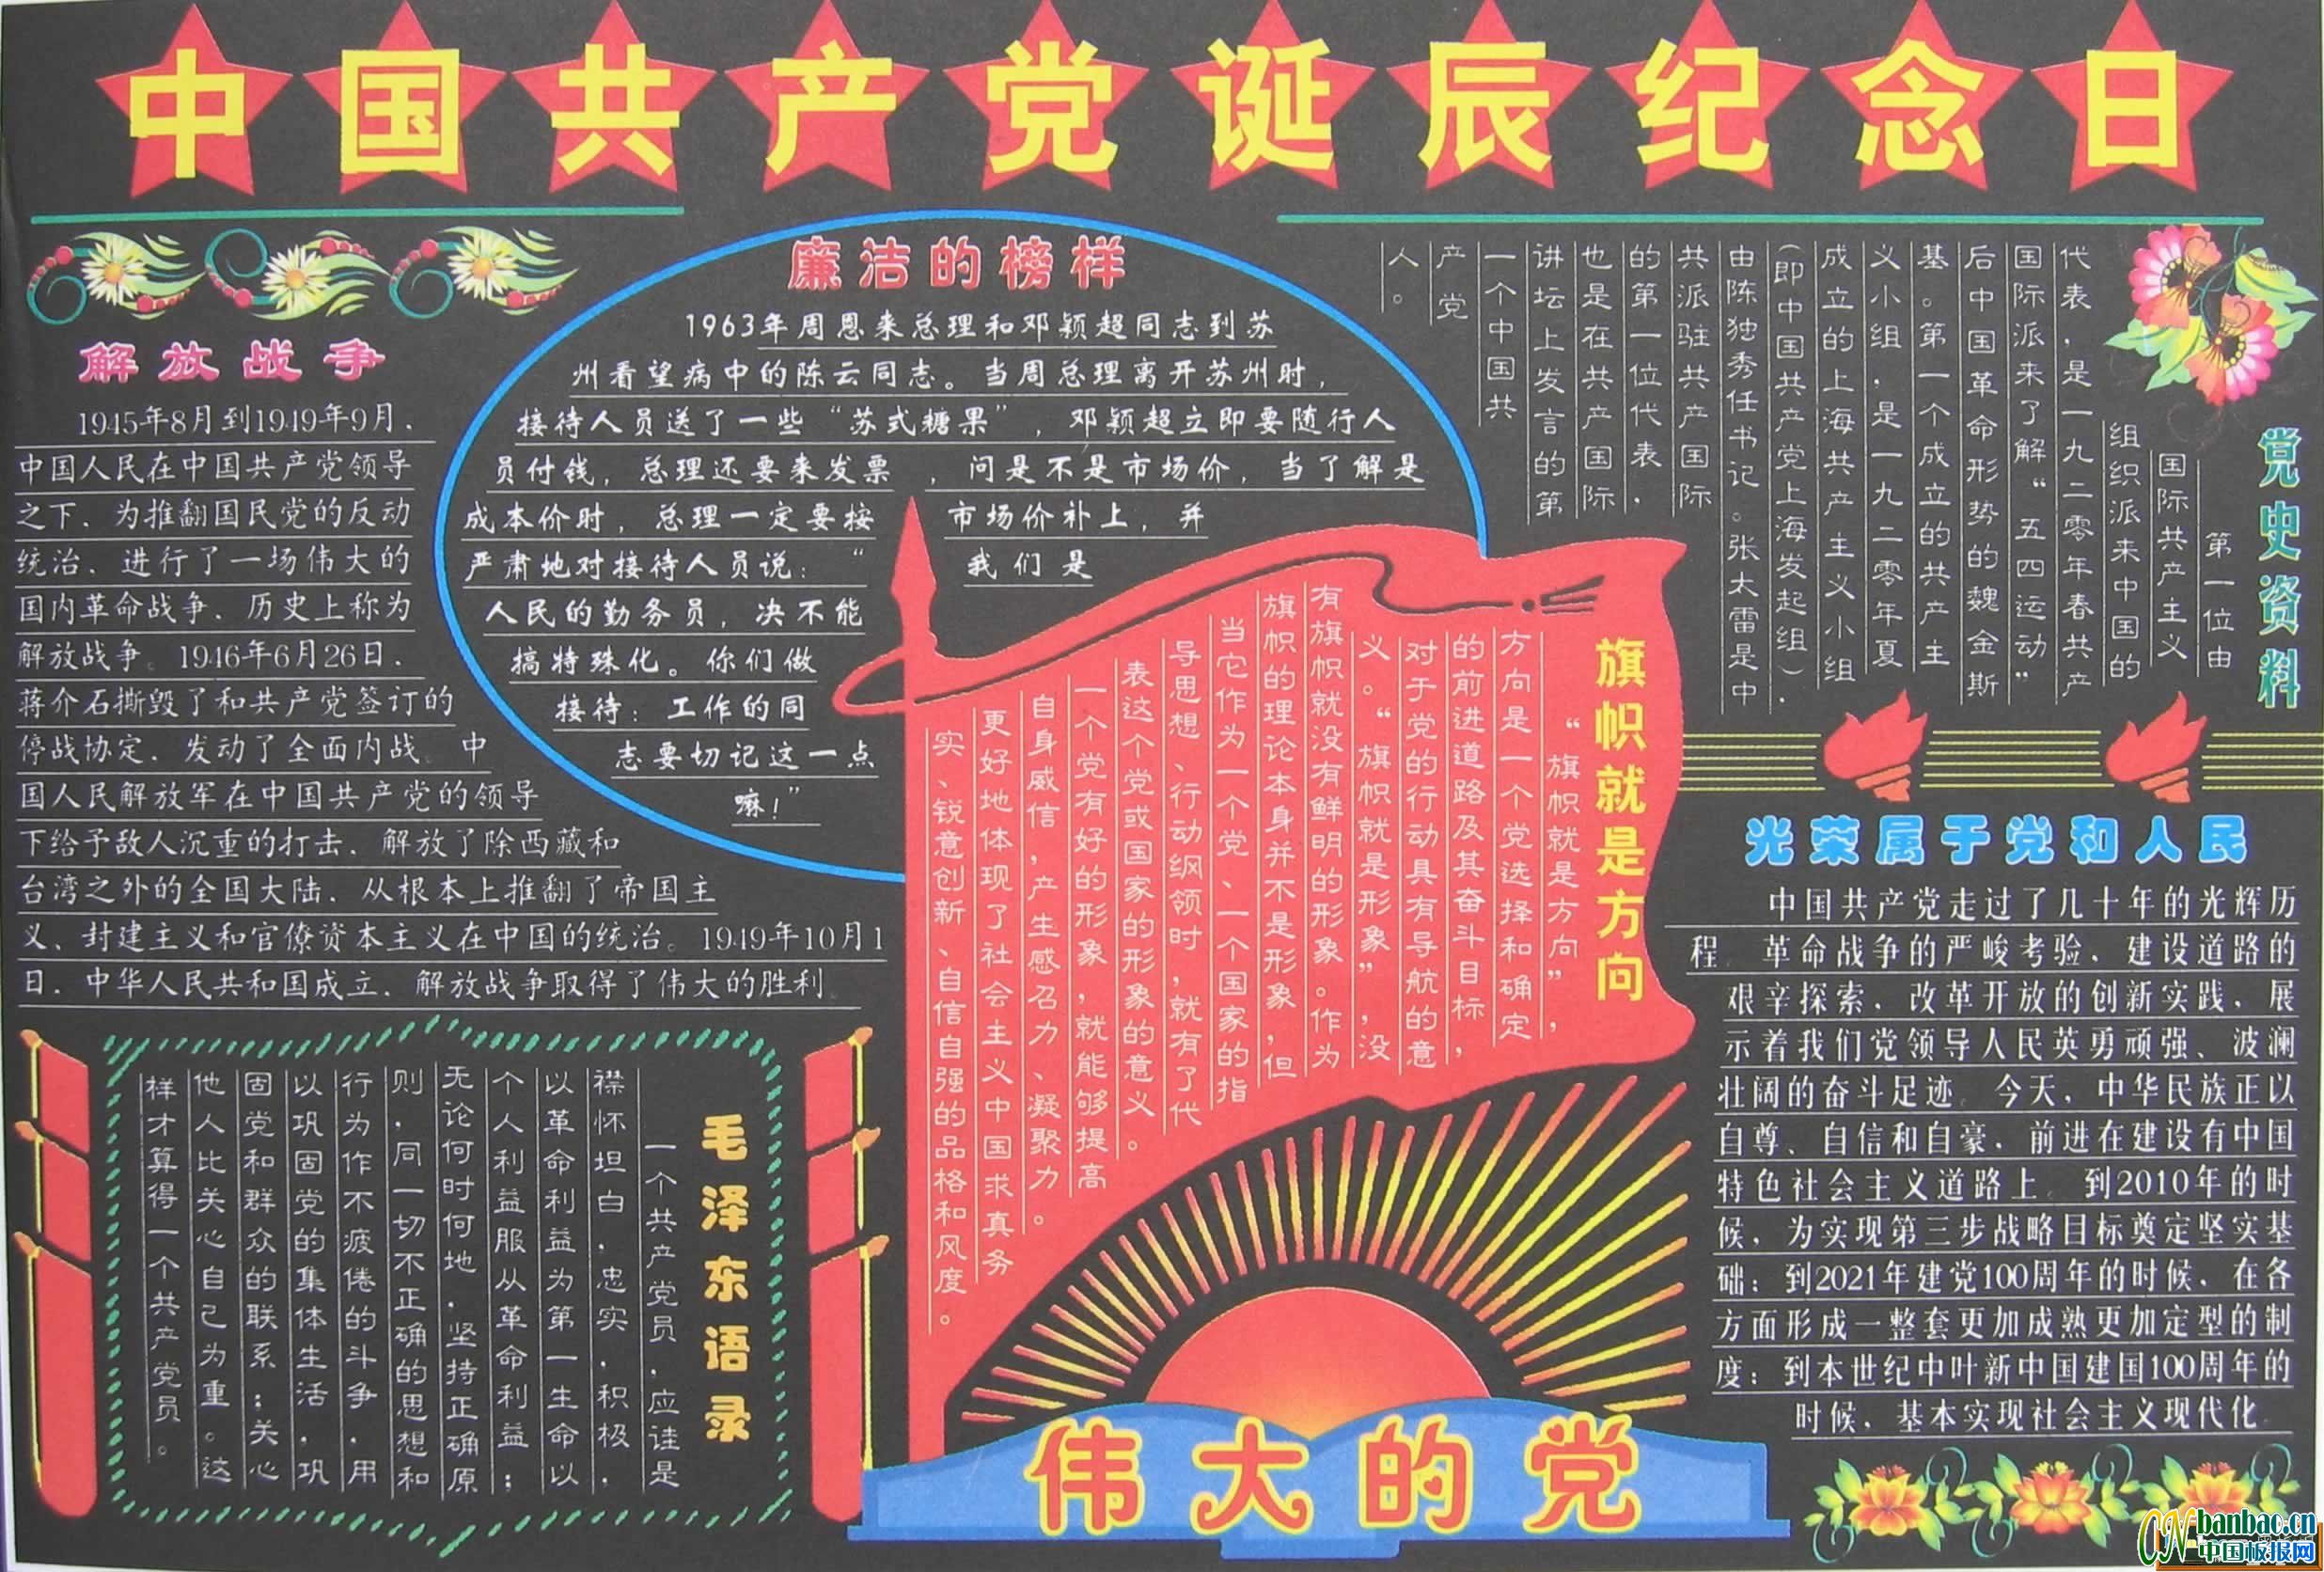 中国共产党诞辰纪念日
解放战争
1945年8月到1949年9月，
中国人民在中国共产党领导
之下，为推翻国民党的反动
统治，进行了一场伟大的
国内革命战争，历史上称为
解放战争。1946年6月26日，
蒋介石撕毁了和共产党签订的
停战协定，发动了全面内战。中
国人民解放军在中国共产党的领导
下给予敌人沉重的打击，解放了除西藏和
台湾之外的全国大陆，从根本上推翻了帝国主
义、封建主义和官僚资本主义在中国的统治。1949年10月1
日，中华人民共和国成立，解放战争取得了伟大的胜利。
廉洁的榜样
1963年周恩来总理和邓颖超同志到苏
州看望病中的陈云同志。当周总理离开苏州时，
接待人员送了一些“苏式糖果”，邓颖超立即要随行人
员付钱，总理还要来发票，问是不是市场价，当了解是
成本价时，总理一定要按市场价补上，并
严肃地对接待人员说：“我们是
人民的勤务员，决不能
搞特殊化。你们做
接待：工作的同
志要切记这一点
嘛！”
党史资料
第一位由
国际共产主义
组织派来中国的
代表，是一九二零年春共产
国际派来了解“五四运动”
后中国革命形势的魏金斯
基。第一个成立的共产主
义小组，是一九二零年夏
成立的上海共产主义小组
（即中国共产党上海发起组），
由陈独秀任书记。张太雷是中
共派驻共产国际
的第一位代表，
也是在共产国际
讲坛上发言的第
一个中国共
产党
人。
旗帜就是方向
“旗帜就是方向”，
方向是一个党选择和确定
的前进道路及其奋斗目标，
对于党的行动具有导航的意
义。“旗帜就是形象”，没
有旗帜就没有鲜明的形象。作为
旗帜的理论本身并不是形象，但
当它作为一个党、一个国家的指
导思想、行动纲领时，就有了代
表这个党或国家的形象的意义。
一个党有好的形象，就能够提高
自身威信，产生感召力、凝聚力。
更好地体现了社会主义中国求真务
实、锐意创新、自信自强的品格和风度。
光荣属于党和人民
中国共产党走过了几十年的光辉历
程。革命战争的严峻考验，建设道路的
艰辛探索，改革开放的创新实践，展
示着我们党领导人民英勇顽强、波澜
壮阔的奋斗足迹。今天，中华民族正以
自尊、自信和自豪，前进在建设有中国
特色社会主义道路上。到2010年的时
候，为实现第三步战略目标奠定坚实基
础；到2021年建党100周年的时候，在各
方面形成一整套更加成熟更加定型的制
度；到本世纪中叶新中国建国100周年的
时候，基本实现社会主义现代化。
毛泽东语录
一个共产党员，应诖是
襟怀坦白，忠实，积极，
以革命利益为第一生命以
个人利益服从革命利益；
无论何时何地，坚持正确原
则，同一切不正确的思想和
行为作不疲倦的斗争，用
以巩固党的集体生活，巩
固党和群众的联系；关心
他人比关心自己为重。这
样才算得一个共产党员。
伟大的党
CN banbao.cn
中国板报网